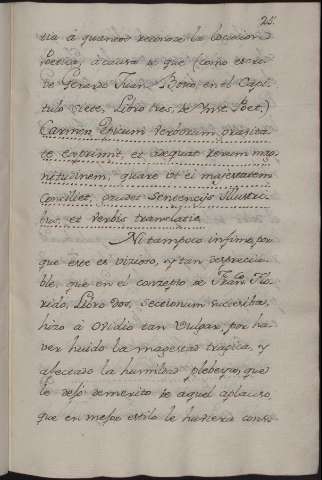 25.
tia a quantos reconoce la locucion
Poetica, à causa de que (como escri-
ve Gerardo Juan Bosio, en el Capi-
tulo siete, Libro tres, de Ynst. Poet.)
Carmen Epicum Verborum gravita-
te exprimit, et adæquat rerum mag-
nitudinem, quare ut ei majestatem
Conciliet, gaudet Sententijs Illustri-
bus, et verbis translatis.
Ni tampoco infimo, por
que este es vizioso, y tan desprecia-
ble, que en el concepto de Fran.co Flo-
rido, Libro dos, Seccionum succesivas,
hizo à Ovidio tan Vulgar, por ha-
ver huido la magestad tragica, y
afectado la humildad plebeya, que
le dejò demerito de aquel aplauso,
que en mejor estilo le huviera conse-